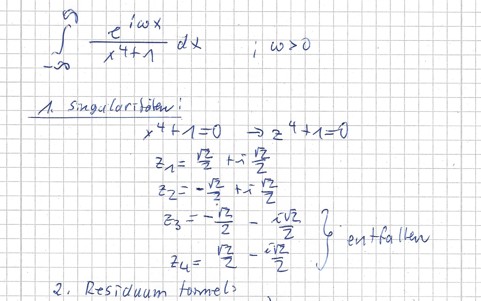 ∫_{-∞}^{∞} e^{iωx} / (x⁴+1) dx ; ω>0
1. Singularitäten:
x⁴+1=0 → z⁴+1=0
z₁= √2/2 + i √2/2
z₂= -√2/2 + i √2/2
z₃= -√2/2 - i√2/2
z₄= √2/2 - i√2/2 } entfallen
2. Residuum formel: